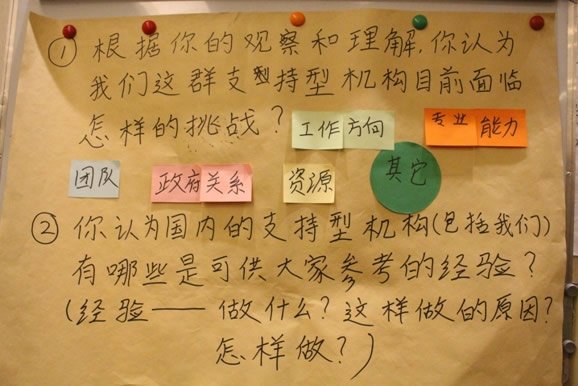 ① 根据你的观察和理解，你认为
我们这群支型持型机构目前面临
怎样的挑战？ 工作方向 专业能力
团队 政府关系 资源 其它
② 你认为国内的支持型机构(包括我们)
有哪些是可供大家参考的经验？
(经验——做什么？这样做的原因？
怎样做？)